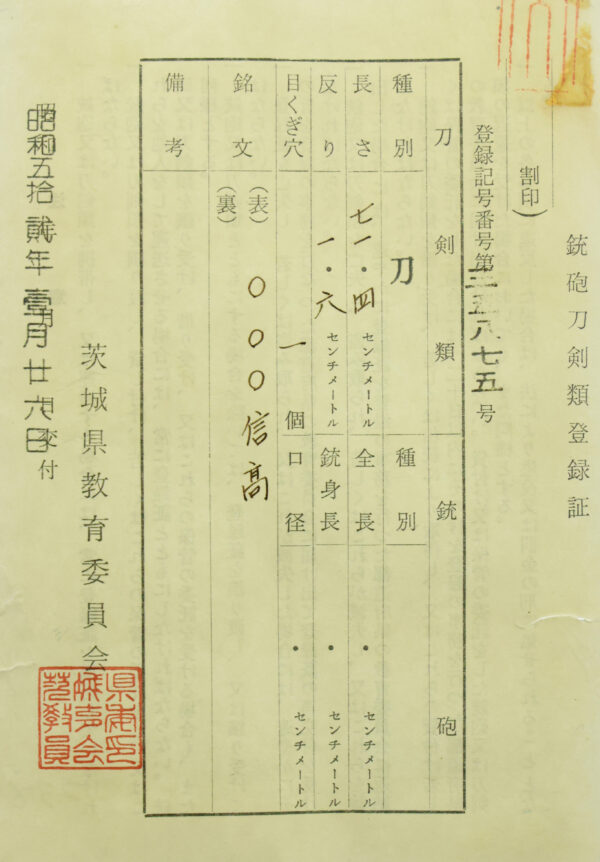 銃砲刀剣類登録証
割印)
登録記号番号第二五八七五号
刀剣類 銃砲
種別 刀 種別
長さ 七一・四センチメートル 全長 ・センチメートル
反り 一・六センチメートル 銃身長 ・センチメートル
目くぎ穴 一個 口径 ・センチメートル
銘文 (表) 〇〇〇信高
(裏)
備考
昭和五拾貳年壹月廿六日交付
茨城県教育委員会